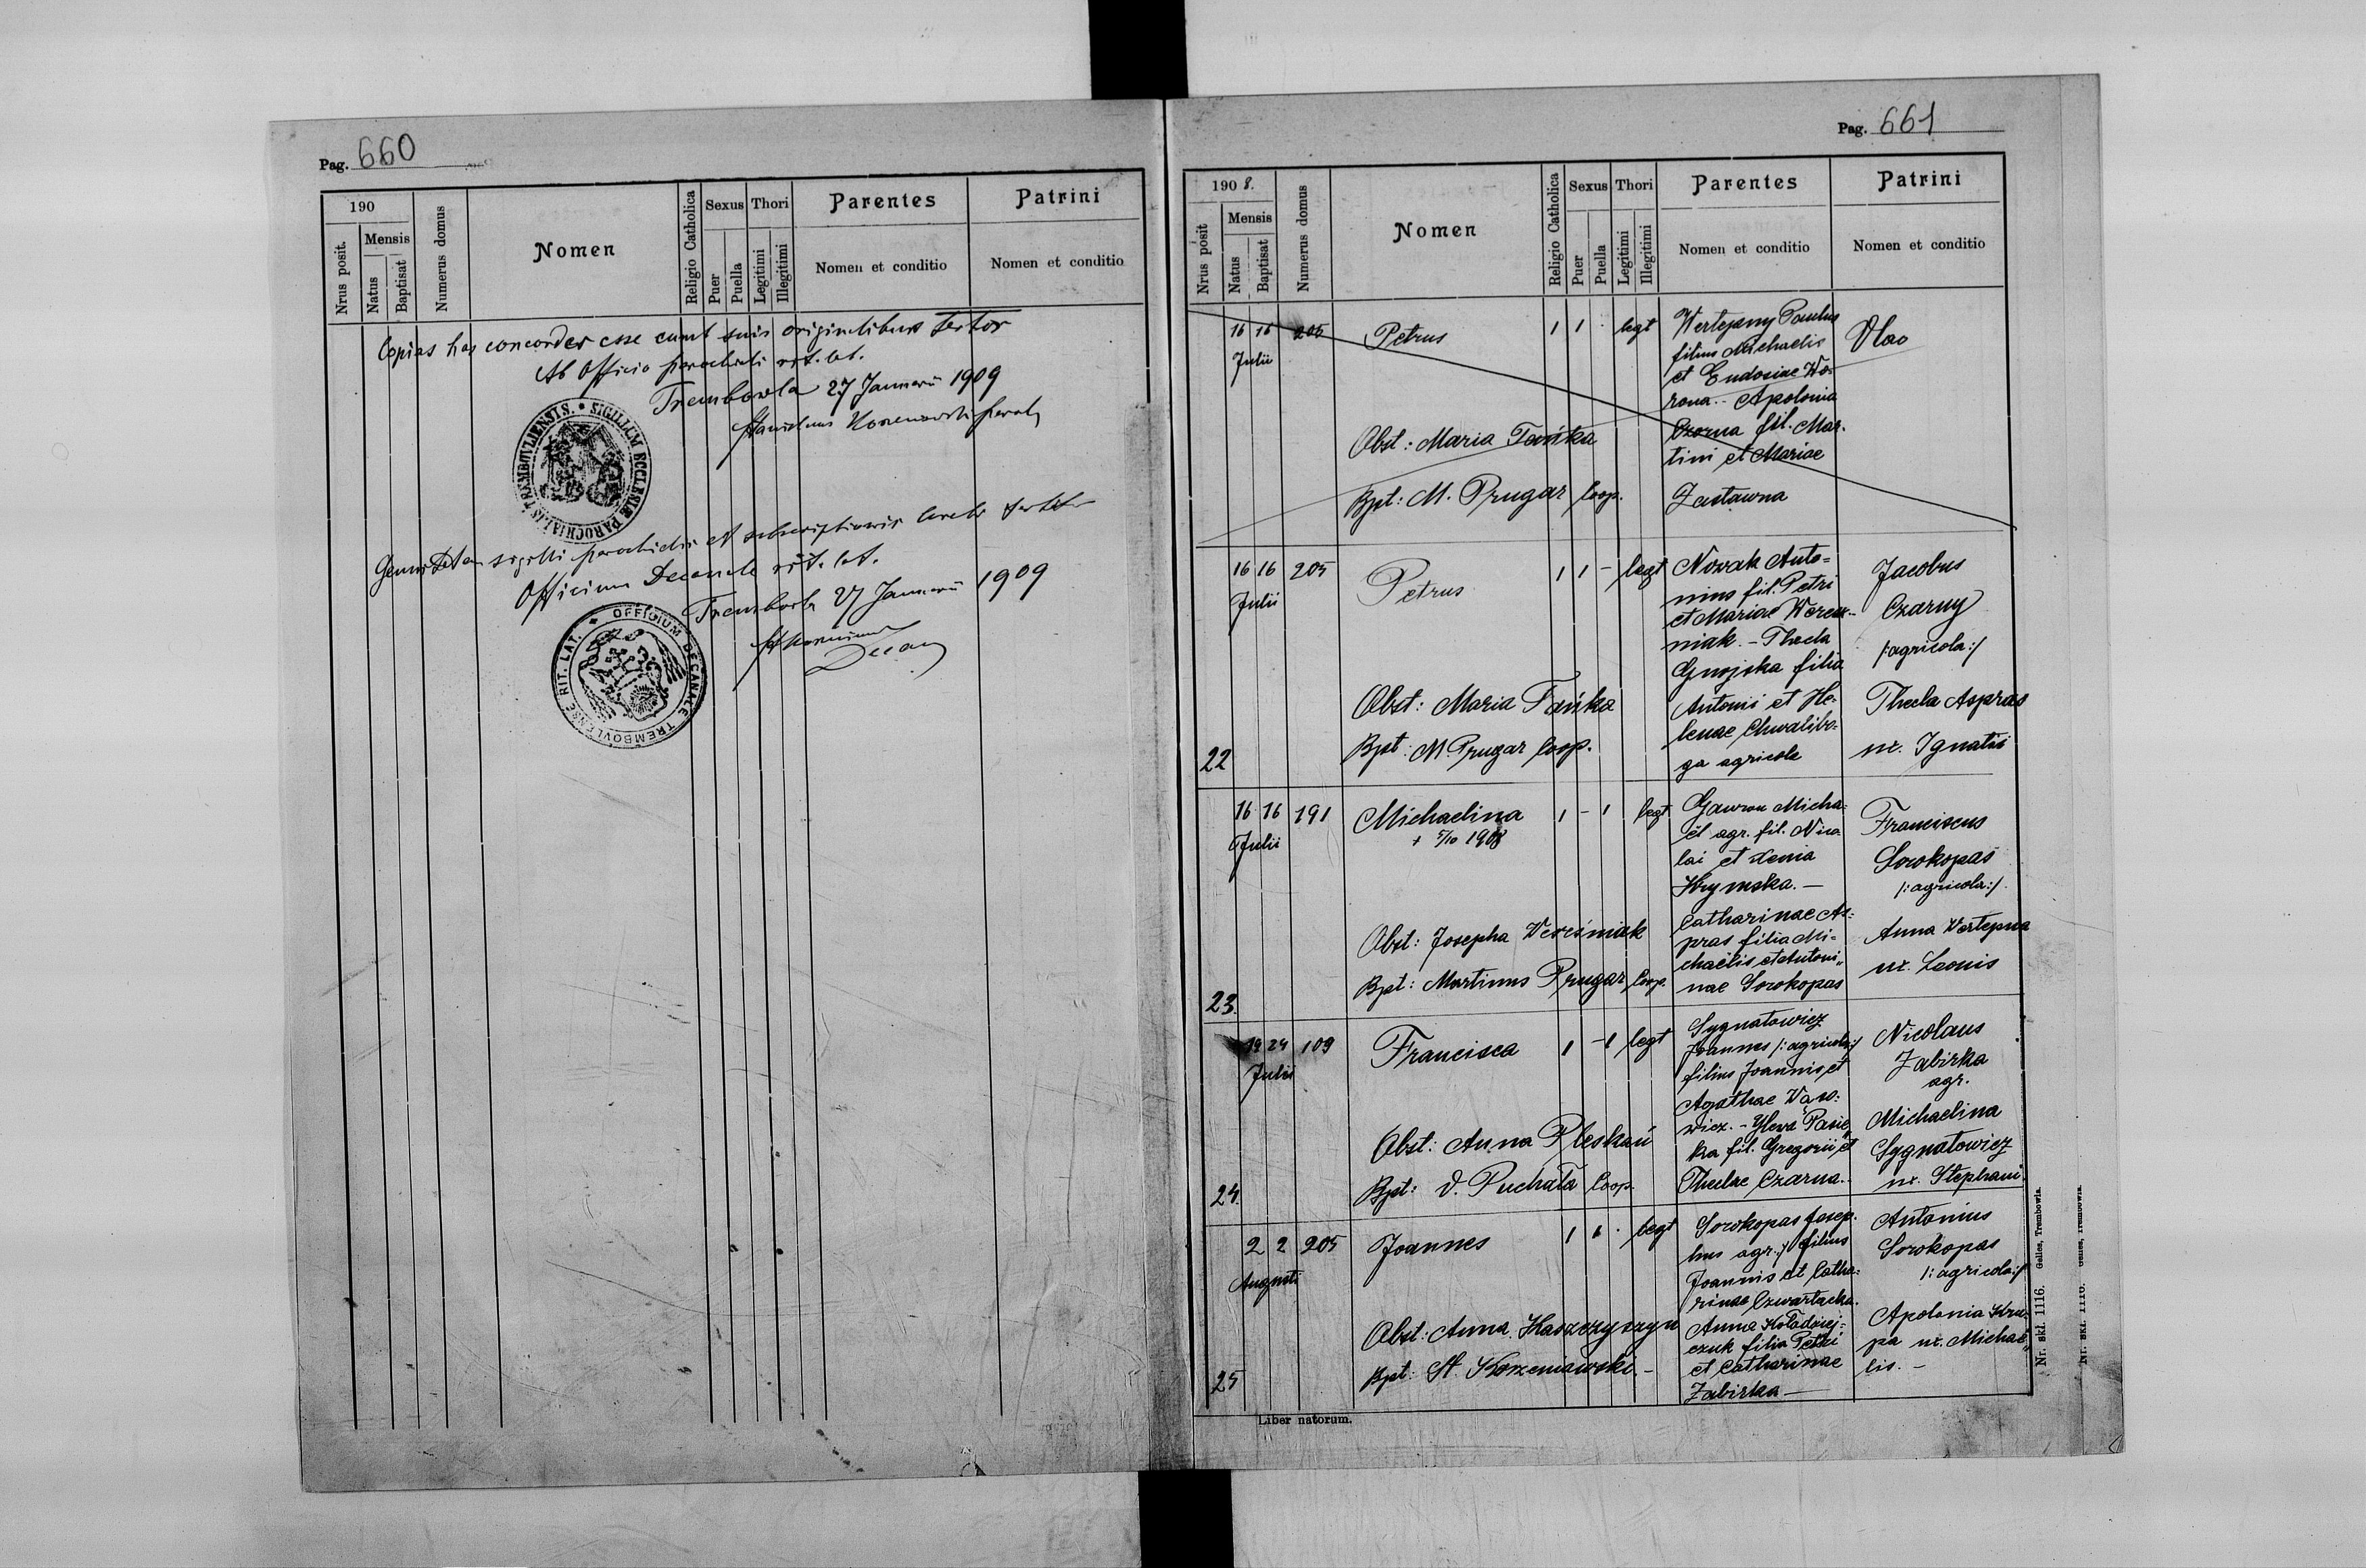 Pag. 660
190
Nrus posit.
Mensis
Natus
Baptisat
Numerus domus
Nomen
Religio Catholica
Sexus
Puer
Puella
Thori
Legitimi
Illegitimi
Parentes
Nomen et conditio
Patrini
Nomen et conditio
Copias has concordes esse cum suis originalibus testor
Ab Officio parochiali rit. lat.
Trembowla 27 Januarii 1909
SIGILLUM ECCLESIÆ PAROCHIALIS TREMBOVLIENSIS.
sigilli parochialis et subscriptionis
Officium Decanale rit. lat.
27 Januarii 1909
OFFICIUM DECANALE TREMBOVLENSE RIT. LAT.
Decan
Pag. 661
1908.
Nrus posit
Mensis
Natus
Baptisat
Numerus domus
Nomen
Religio Catholica
Sexus
Puer
Puella
Thori
Legitimi
Illegitimi
Parentes
Nomen et conditio
Patrini
Nomen et conditio
16 16 205 Petrus 1 1 · legt
Julii
Wertepny Paulus
filius Michaelis
et Eudosiae Wo-
rona.- Apolonia
Czorna fil. Mar-
tini et Mariae
Zastawna
Obst: Maria Tańka
Bpt: M. Prugar Coop.
22
16 16 205 Petrus 1 1 - legt
Julii
Nowak Anto=
nius fil. Petri
et Mariae
niak. - Thecla
Gnojska filia
Antonii et He-
lenae Chwalibo-
ga agricola
Jacobus
Czarny
/:agricola:/
Thecla Aspras
ux. Ignatii
Obst: Maria Tańka
Bpt: M. Prugar Coop.
23.
16 16 191 Michaelina 1 - 1 legt
Julii
+ 5/10 1908
Gawron Micha=
ël agr. fil. Nico
lai et Xenia
Hrymska. -
Catharinae As=
pras filia Mi=
chaëlis et Antoni"
nae Sorokopas
Franciscus
Sorokopas
/:agricola:/.
Anna Wertepna
ux. Leonis
Obst: Josepha Wereśniak
Bpt: Martinus Prugar Coop.
24.
19 24 109 Francisca 1 - 1 legt
Julii
Sygnatowicz
Joannes /:agricola:/
filius Joannis et
Agathae Waw=
wicz. - Pasie
ka fil. Gregorii et
Theclae Czarna.-
Nicolaus
Zabirka
agr.
Michaelina
Sygnatowicz
ux. Stephani
Obst: Anna Pleskań
Bpt: V. Puchała Coop.
25
2 2 205 Joannes 1 1 · legt
Augusti
Sorokopas Josep-
hus agr:/ filius
Joannis et Catha-
rinae Czwartacka.
Anna Kołodziej=
czuk filia Petri
et Catharinae
Zabirka -
Antonius
Sorokopas
/:agricola:/
Apolonia Kru-
pa ux. Michaë"
lis. -
Obst: Anna Haszczyszyn
Bpt: St. Korzeniowski. -
Liber natorum.
Nr. skł. 1116. Gelles, Trembowla.
Nr. skł. 1116. Gelles, Trembowla.